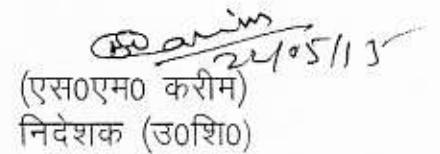 24/05/15
(एस0एम0 करीम)
निदेशक (उ0शि0)